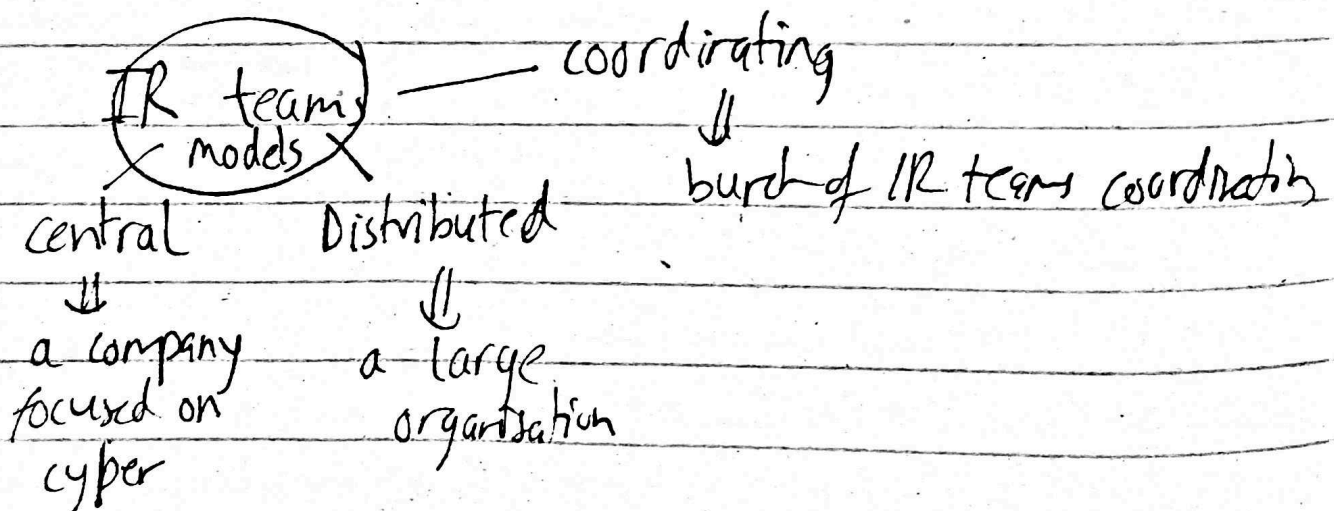 IR teams
models
coordinating
⇓
bunch of IR teams coordinating
central
⇓
a company
focused on
cyber
Distributed
⇓
a large
organisation